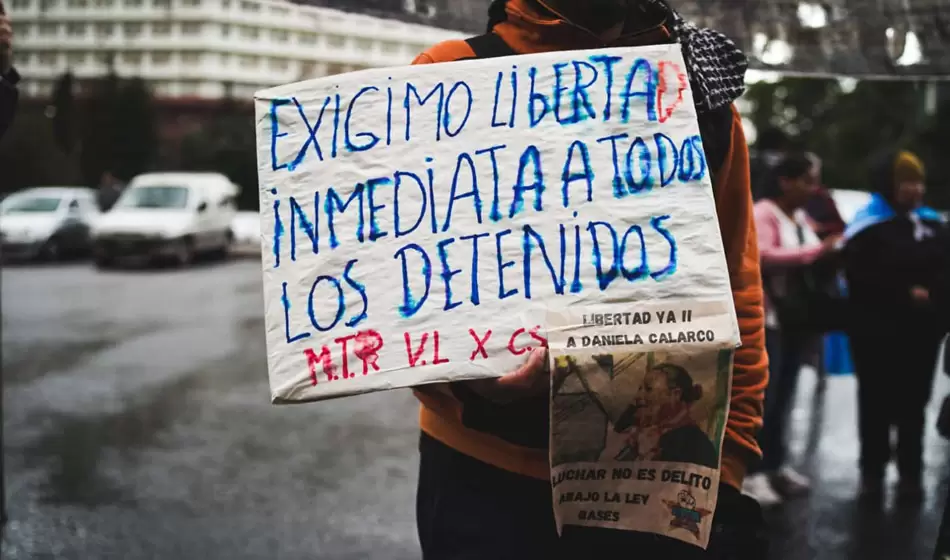 EXIGIMO LIBERTAD
INMEDIATA A TODOS
LOS DETENIDOS
M.T.R V.L X C.S
LIBERTAD YA !!
A DANIELA CALARCO
LUCHAR NO ES DELITO
ABAJO LA LEY
BASES